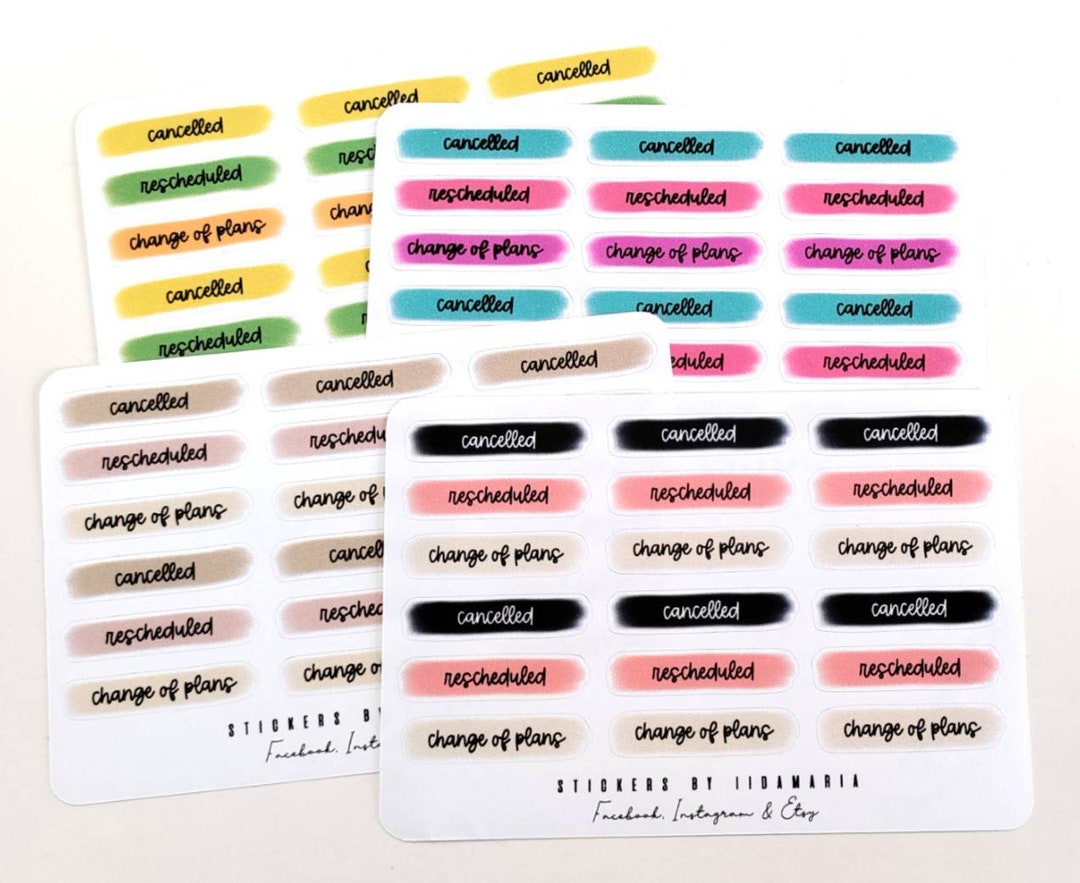 cancelled cancelled cancelled
rescheduled
change of plans
cancelled
rescheduled
cancelled cancelled cancelled
rescheduled rescheduled rescheduled
change of plans change of plans change of plans
cancelled cancelled cancelled
rescheduled
cancelled cancelled cancelled
rescheduled
change of plans change of
cancelled
rescheduled
change of plans change of
STICKERS
cancelled cancelled cancelled
rescheduled rescheduled rescheduled
change of plans change of plans change of plans
cancelled cancelled cancelled
rescheduled rescheduled rescheduled
change of plans change of plans change of plans
STICKERS BY IIDAMARIA
Facebook, Instagram & Etsy